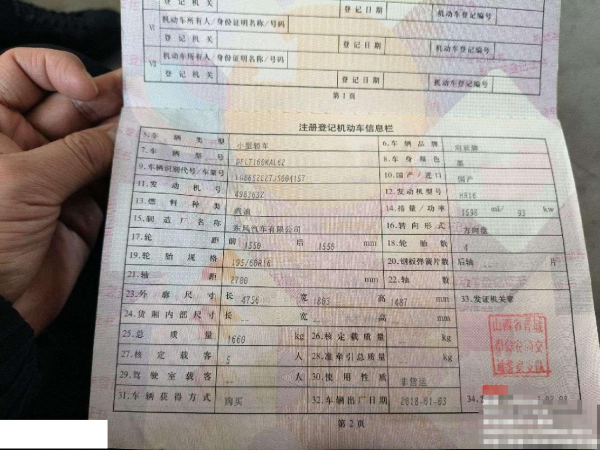 登记机关 登记日期 登记编号
VI 机动车所有人/身份证明名称/号码
登记机关 登记日期 机动车登记编号
VII 机动车所有人/身份证明名称/号码
登记机关 登记日期 机动车登记编号
第1页
注册登记机动车信息栏
5.车辆类型 小型轿车 6.车辆品牌
7.车辆型号 8.车身颜色 黑
9.车辆识别代号/车架号 10.国产/进口 国产
11.发动机号 498263Z 12.发动机型号 HR16
13.燃料种类 汽油 14.排量/功率 1598 ml/ 93 kw
15.制造厂名称 东风汽车有限公司 16.转向形式 方向盘
17.轮距 前 1550 后 1550 mm 18.轮胎数 4
19.轮胎规格 195/60R16 20.钢板弹簧片数 后轴 片
21.轴距 2700 mm 22.轴数 2
23.外廓尺寸 长 4756 宽 1803 高 1487 mm 33.发证机关章
24.货厢内部尺寸 长 宽 高 mm
25.总质量 1660 kg 26.核定载质量 kg
27.核定载客 5 人 28.准牵引总质量 kg
29.驾驶室载客 人 30.使用性质 非营运
31.车辆获得方式 购买 32.车辆出厂日期 2018-01-03 34.
第2页